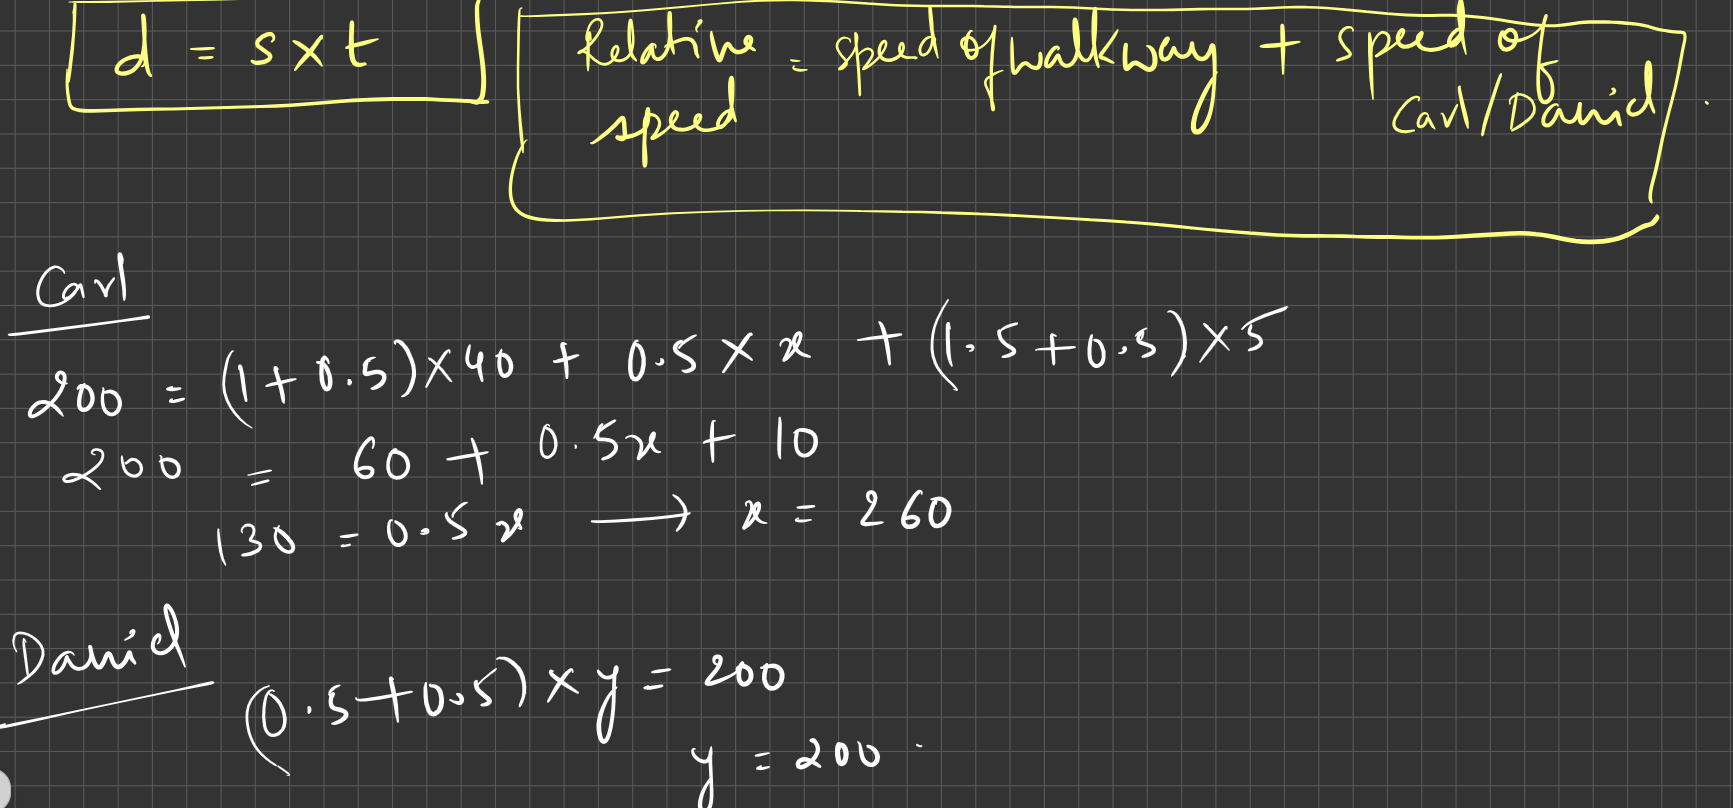 d = s x t
Relative = speed of walkway + speed of
speed Carl/Daniel
Carl
200 = (1+0.5)x40 + 0.5 x x + (1.5+0.5)x5
200 = 60 + 0.5x + 10
130 = 0.5x → x = 260
Daniel
(0.5+0.5) x y = 200
y = 200.